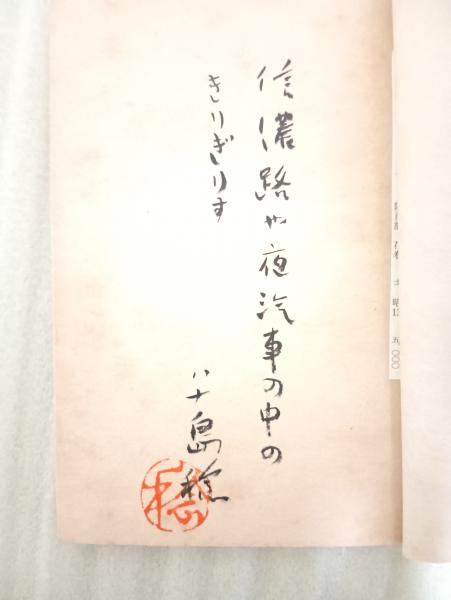 信濃路や夜汽車の中の
きりぎりす
八十島稔
稔
五、〇〇〇